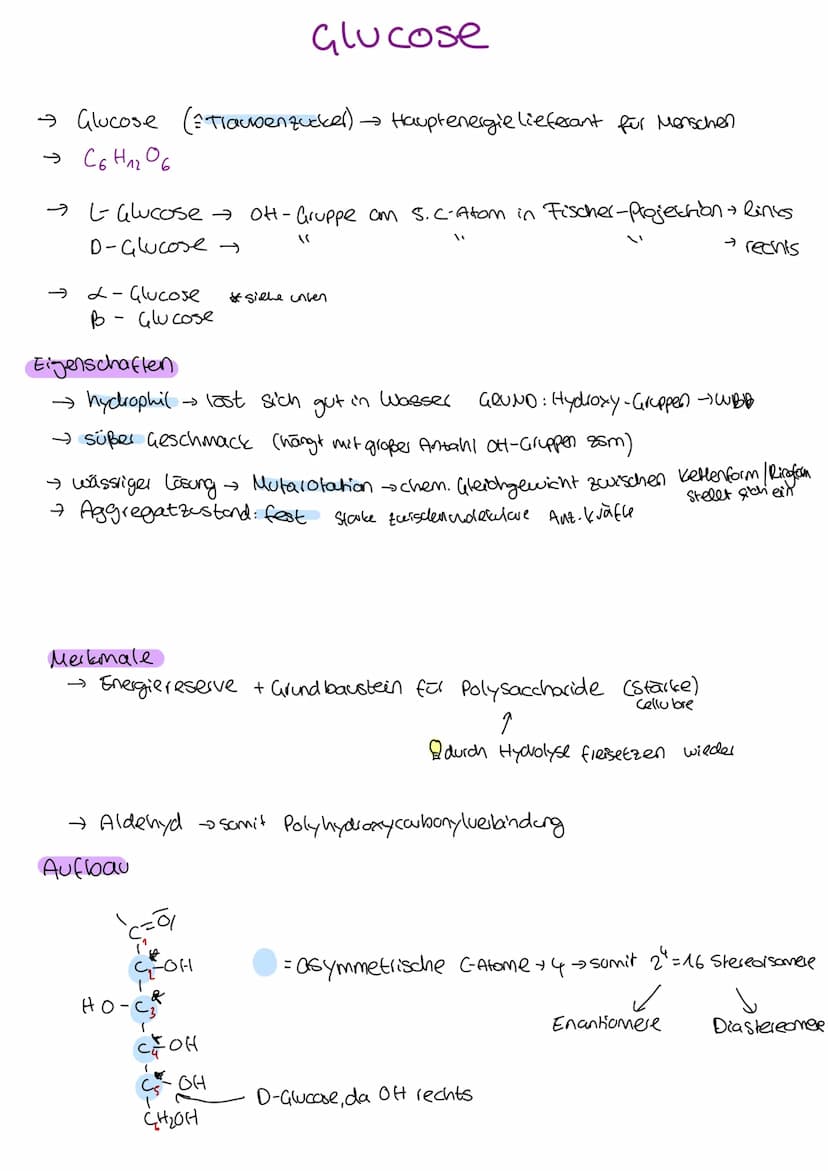 Glucose
→ Glucose (≙ Traubenzucker) → Hauptenergielieferant für Menschen
→ C₆H₁₂O₆
→ L-Glucose → OH-Gruppe am 5. C-Atom in Fischer-Projektion → links
D-Glucose → " " " → rechts
→ α-Glucose * siehe unten
β - Glucose
Eigenschaften
→ hydrophil → löst sich gut in Wasser GRUND: Hydroxy-Gruppen → WBB
→ süßer Geschmack (hängt mit großer Anzahl OH-Gruppen zsm)
→ wässriger Lösung → Mutarotation → chem. Gleichgewicht zwischen Kettenform/Ringform
stellt sich ein
→ Aggregatzustand: fest starke zwischenmolekulare Anz.kräfte
Merkmale
→ Energiereserve + Grundbaustein für Polysaccharide (Stärke)
Cellulose
durch Hydrolyse freisetzen wieder
→ Aldehyd → somit Polyhydroxycarbonylverbindung
Aufbau
C=O
1
C*-OH
2
= asymmetrische C-Atome → 4 → somit 2⁴=16 Stereoisomere
HO-C*
3
Enantiomere Diastereomere
C*-OH
4
C*-OH
5
D-Glucose, da OH rechts
CH₂OH
6